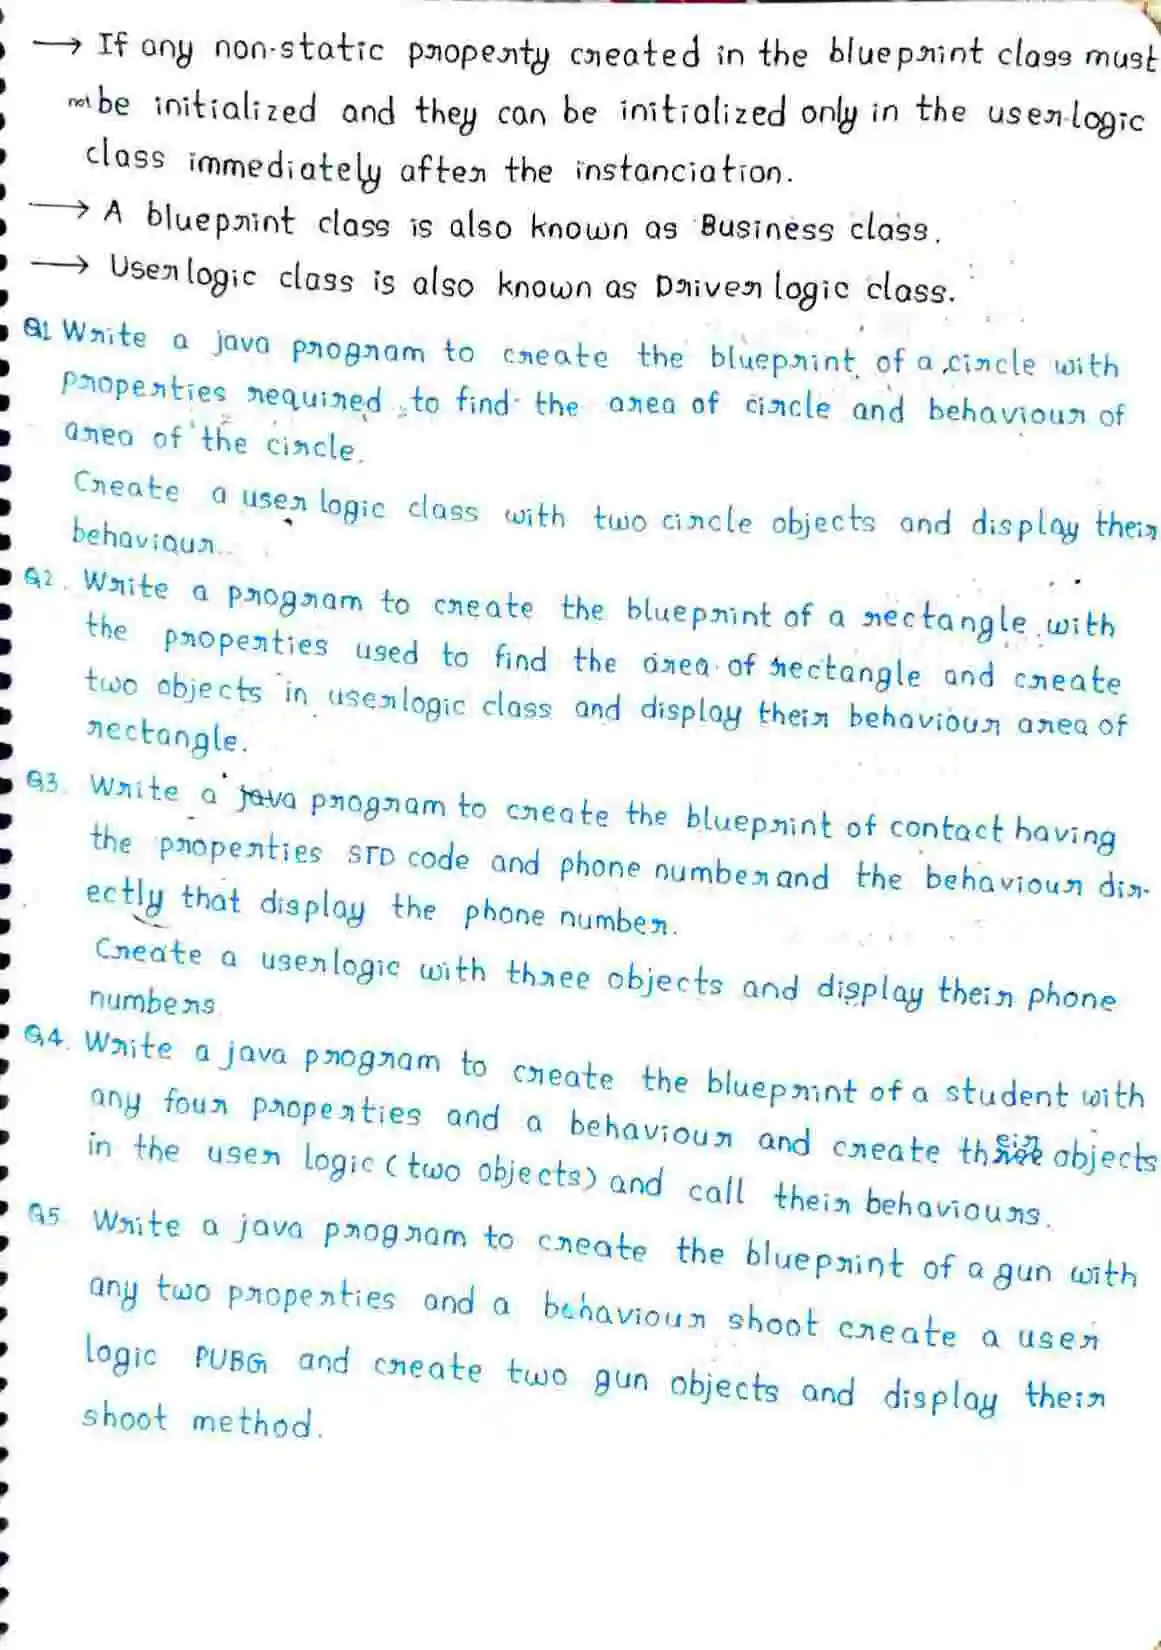 → If any non-static property created in the blueprint class must
not be initialized and they can be initialized only in the user-logic
class immediately after the instanciation.
→ A blueprint class is also known as Business class.
→ User logic class is also known as Driver logic class.
Q1 Write a java program to create the blueprint of a circle with
properties required to find the area of circle and behaviour of
area of the circle.
Create a user logic class with two circle objects and display their
behaviour.
Q2. Write a program to create the blueprint of a rectangle with
the properties used to find the area of rectangle and create
two objects in userlogic class and display their behaviour area of
rectangle.
Q3. Write a java program to create the blueprint of contact having
the properties STD code and phone number and the behaviour dir-
ectly that display the phone number.
Create a userlogic with three objects and display their phone
numbers.
Q4. Write a java program to create the blueprint of a student with
any four properties and a behaviour and create their objects
in the user logic (two objects) and call their behaviours.
Q5. Write a java program to create the blueprint of a gun with
any two properties and a behaviour shoot create a user
logic PUBG and create two gun objects and display their
shoot method.